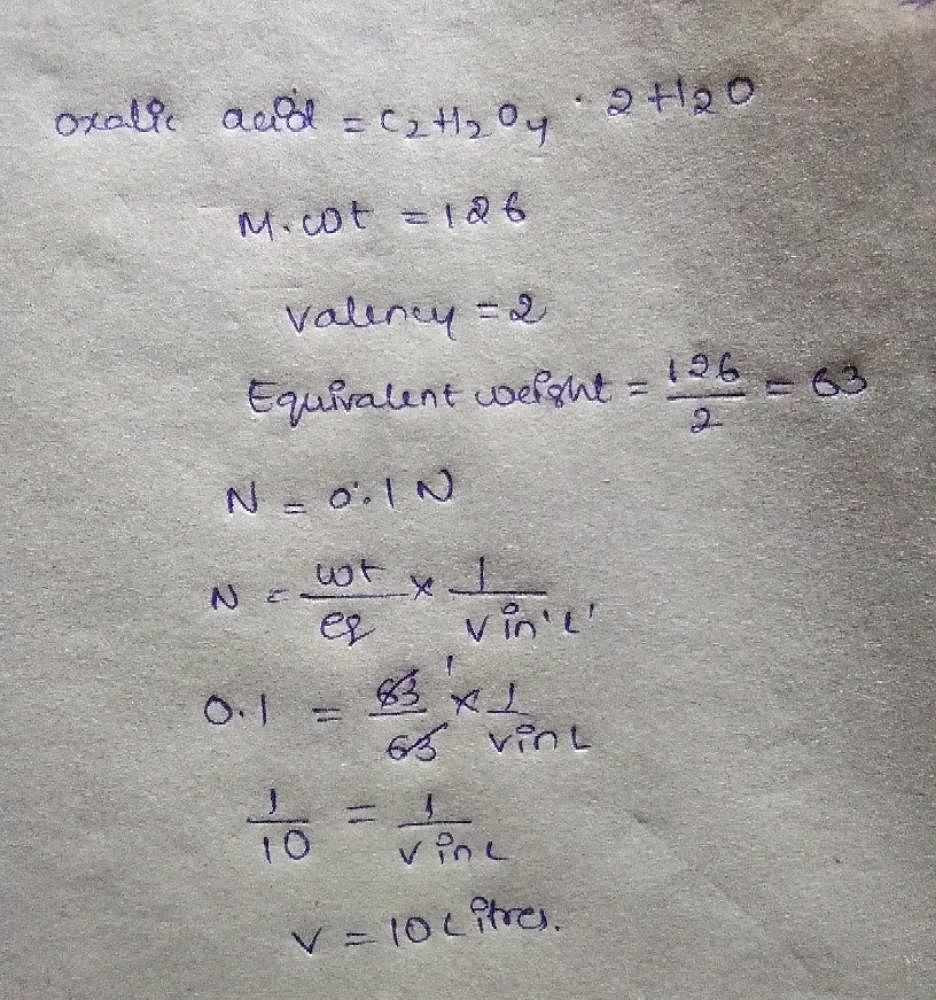 oxalic acid = C₂H₂O₄ · 2H₂O
M.wt = 126
Valency = 2
Equivalent weight = 126/2 = 63
N = 0.1 N
N = wt/eq × 1/V in 'L'
0.1 = 63/63 ¹ × 1/V in L
1/10 = 1/V in L
V = 10 Litres.